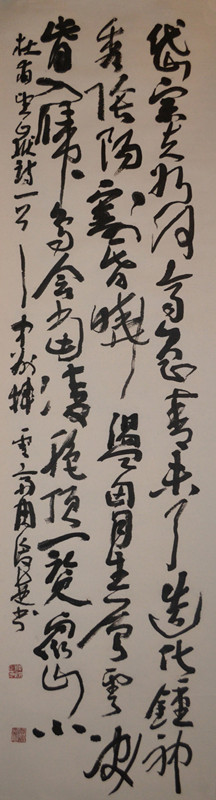 岱宗夫如何齊魯青未了造化鍾神
秀陰陽割昏曉盪胸生曾雲決
眥入歸鳥會當凌絕頂一覽眾山小
杜甫望嶽詩一首 中州 雲齋 書